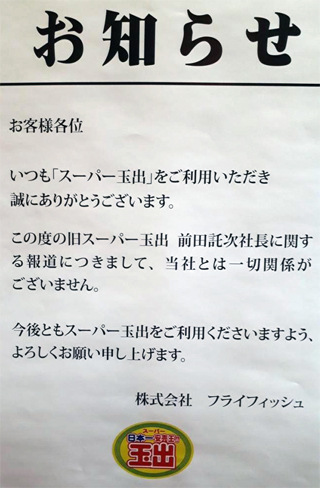 お知らせ
お客様各位
いつも「スーパー玉出」をご利用いただき
誠にありがとうございます。
この度の旧スーパー玉出 前田託次社長に関す
る報道につきまして、当社とは一切関係が
ございません。
今後ともスーパー玉出をご利用くださいますよう、
よろしくお願い申し上げます。
株式会社 フライフィッシュ
スーパー
日本一
玉出